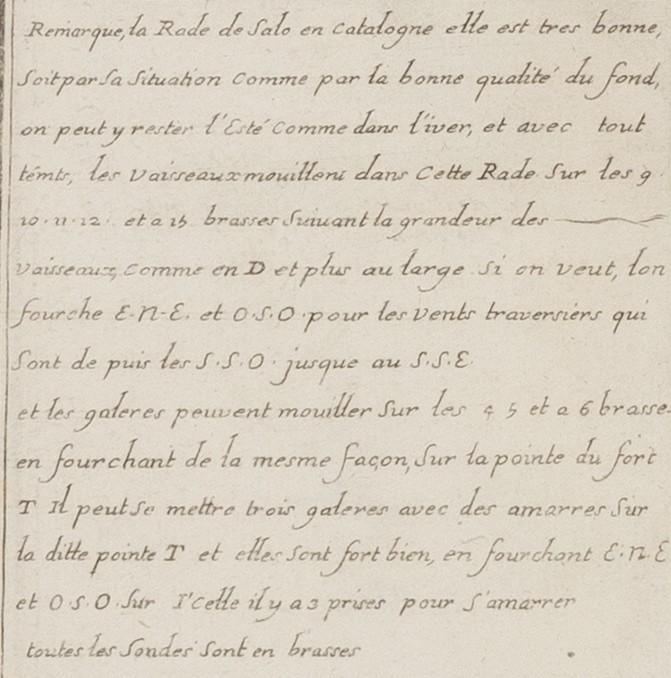 Remarque, la Rade de Salo en Catalogne elle est tres bonne,
Soit par Sa Situation Comme par la bonne qualité du fond,
on peut y rester l'Esté Comme dans l'iver, et avec tout
témts, les Vaisseaux mouillent dans Cette Rade Sur les 9
10. 11. 12. et a 15 brasses Suivant la grandeur des
Vaisseaux, Comme en D et plus au large Si on Veut, lon
fourche E.N.E. et O.S.O. pour les Vents traversiers qui
Sont de puis les S.S.O. jusque au S.S.E.
et les galeres peuvent mouiller Sur les 4 5 et a 6 brasse.
en fourchant de la mesme façon, Sur la pointe du fort
T Il peut Se mettre trois galeres avec des amarres Sur
la ditte pointe T et elles Sont fort bien, en fourchant E.N.E
et O.S.O. Sur I'Celle il y a 3 prises pour S'amarrer
toutes les Sondes Sont en brasses